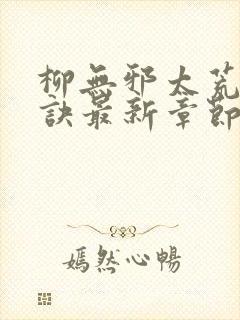 柳無邪太荒
訣最新章節
嫣然心暢